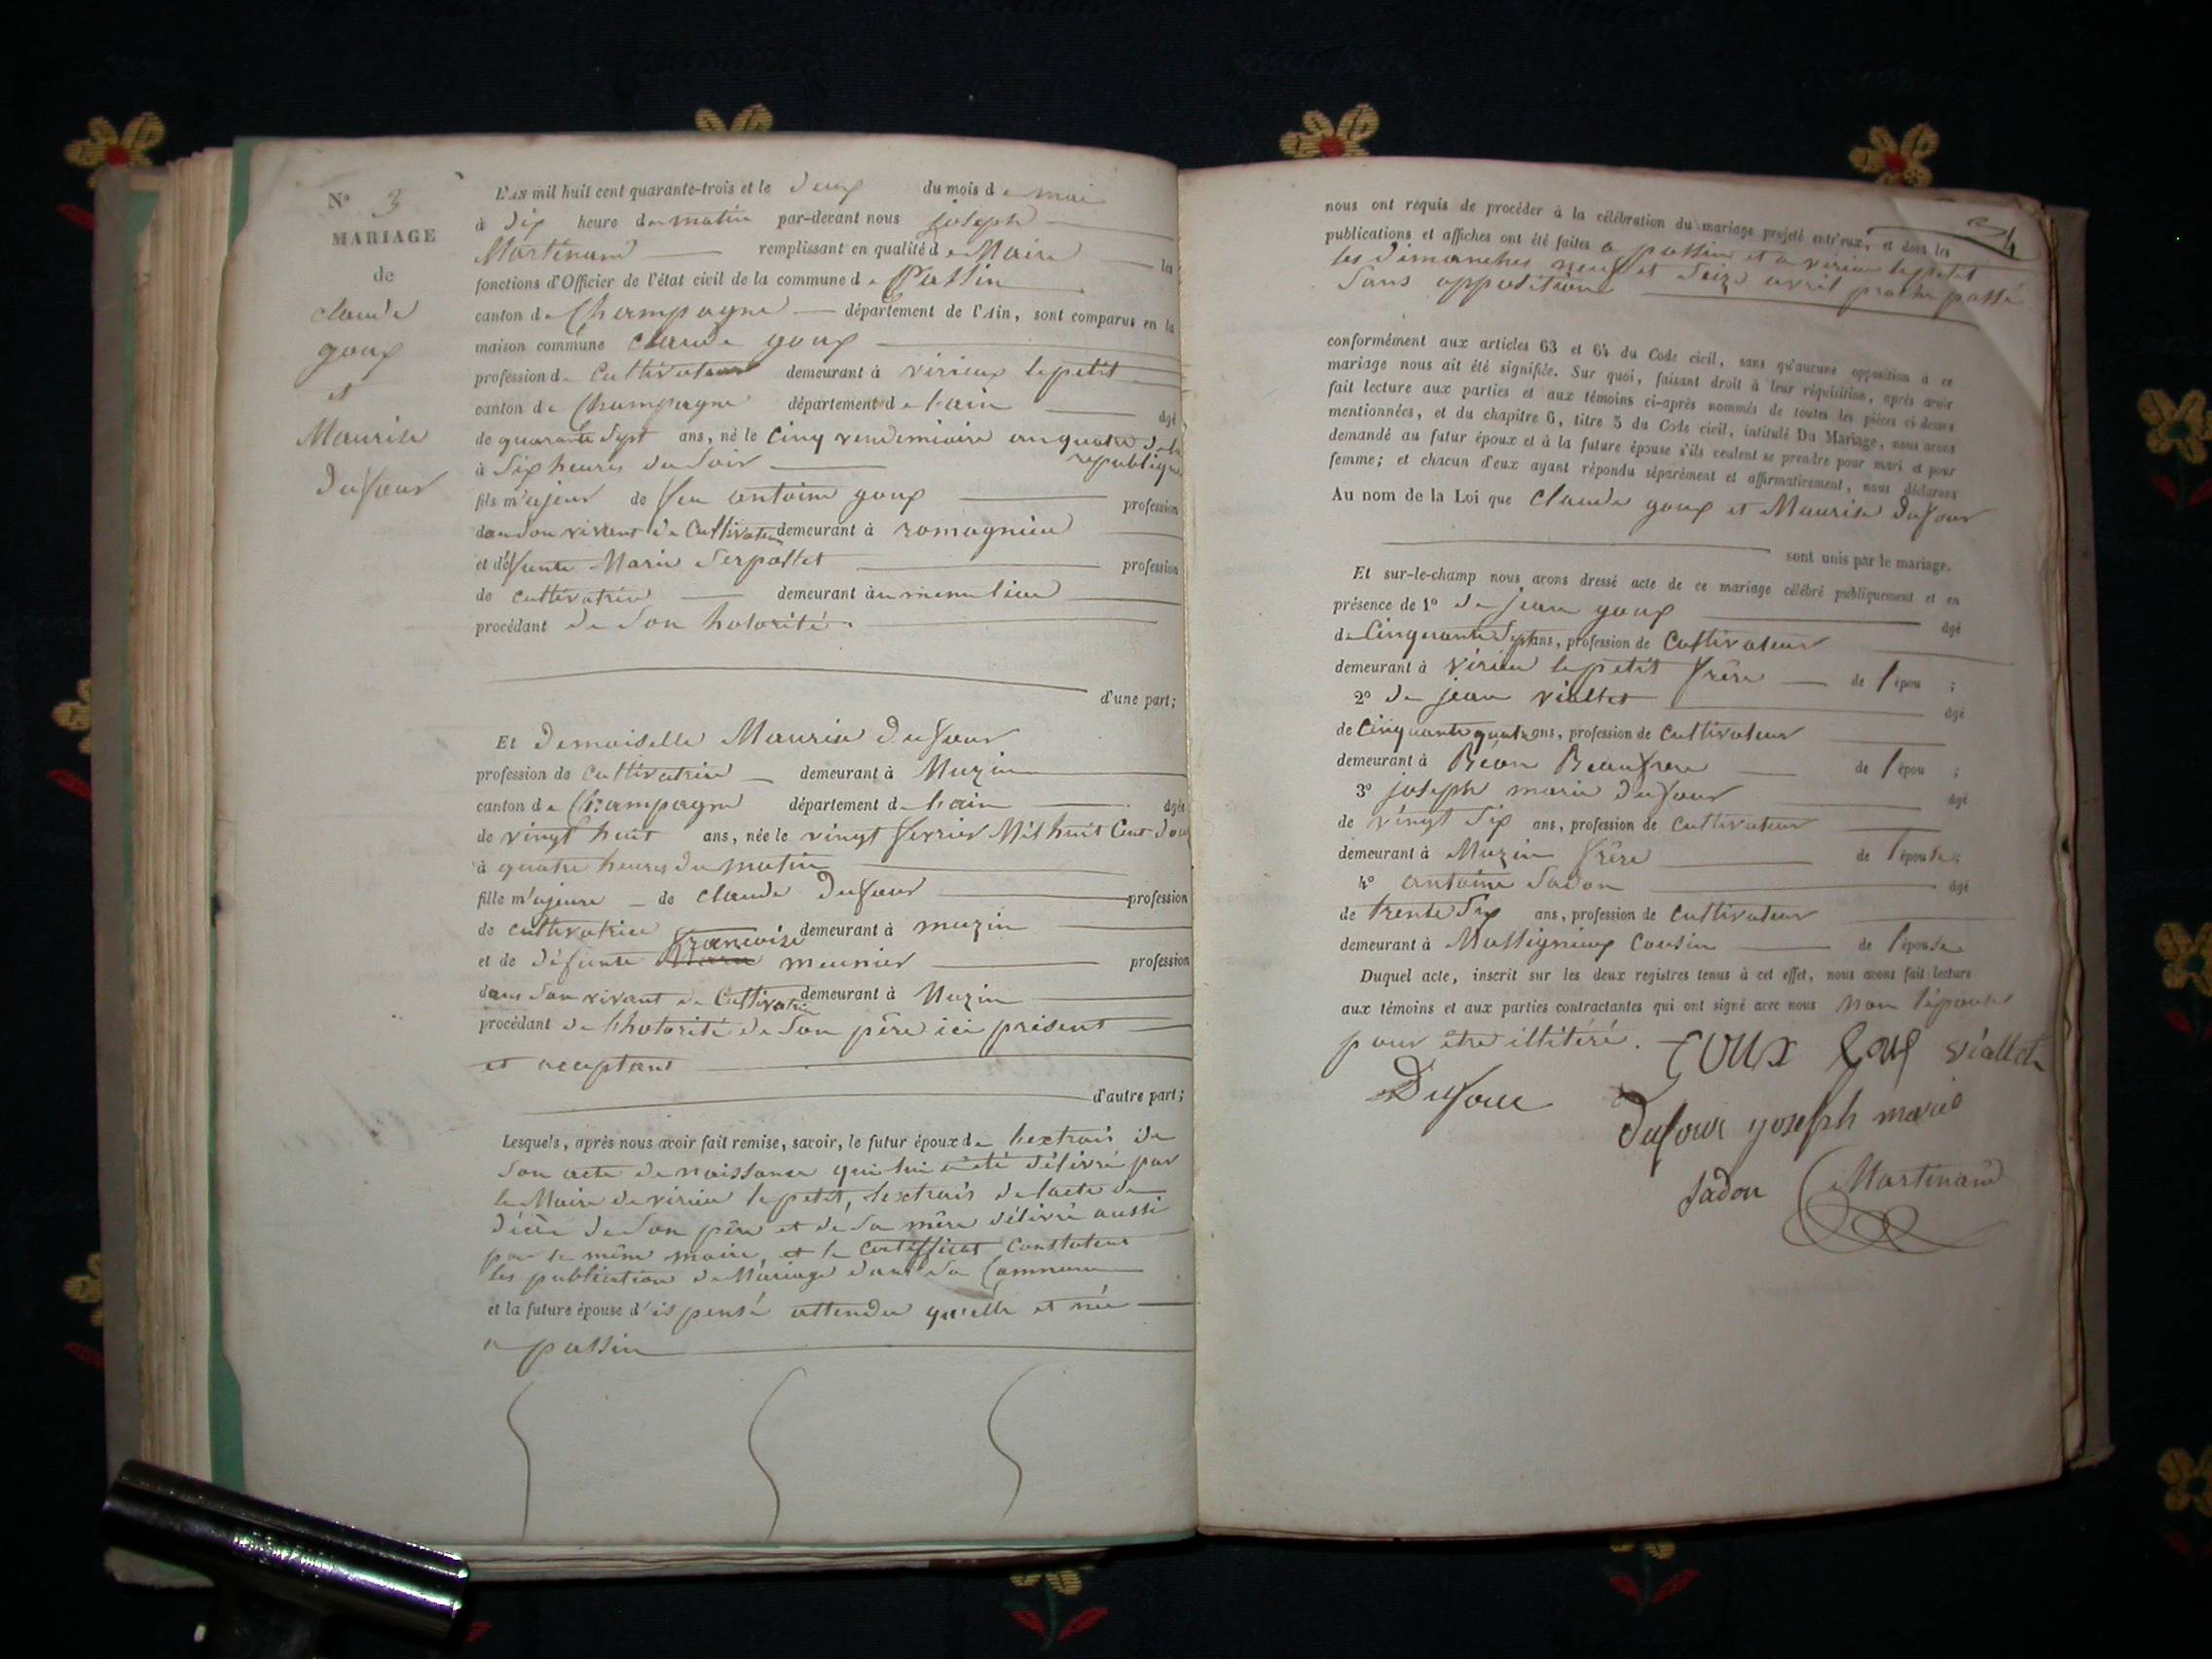 N° 3
MARIAGE
de
claude
goux
et
Maurise
dufour
L'AN mil huit cent quarante-trois et le deux du mois de mai
à dix heure du matin par-devant nous joseph
Martinand remplissant en qualité de Maire les
fonctions d'Officier de l'état civil de la commune de Passin
canton de Champagne département de l'Ain, sont comparus en la
maison commune claude goux
profession de Cultivateur demeurant à virieux le petit
canton de Champagne département de l'ain âgé
de quarante Sept ans, né le Cinq vendemiaire an quatre de la
republique
à Six heures du Soir
fils majeur de feu antoine goux profession
dan Son vivant de Cultivateur demeurant à romagnieu
et défunte Marie Serpollet profession
de cultivatrice demeurant au meme lieu
procédant de Son hotorité.
d'une part;
Et demoiselle Maurise dufour
profession de cultivatrice demeurant à Muzin
canton de Champagne département de l'ain âgée
de vingt huit ans, née le vingt fevrier Mil huit Cent
à quatre heures du matin
fille majeure de claude Dufour profession
de cultivatrice demeurant à muzin
francoise
et de défunte meunier profession
dans Son vivant de Cultivatrice demeurant à Muzin
procédant de l'hotorité de Son père ici présent
et acceptant
d'autre part;
Lesquels, après nous avoir fait remise, savoir, le futur époux de lextrais de
Son acte de naissance qui lui a été délivré par
le Maire de virieu le petit, lextrais de lacte de
décè de Son père et de Sa mère délivré aussi
par le même maire, et le certifficat Constatent
les publication de Mariage dans Sa Commune
et la future épouse d'ispensé attendu qu'elle et née
a passin
34
nous ont requis de procéder à la célébration du mariage projeté entr'eux, et dont les
publications et affiches ont été faites a passin et a virieu le petit
les dimanches neuf et Seize avril proche passé
Sans opposition
conformément aux articles 63 et 64 du Code civil, sans qu'aucune opposition à ce
mariage nous ait été signifiée. Sur quoi, faisant droit à leur réquisition, après avoir
fait lecture aux parties et aux témoins ci-après nommés de toutes les pièces ci-dessus
mentionnées, et du chapitre 6, titre 5 du Code civil, intitulé Du Mariage, nous avons
demandé au futur époux et à la future épouse s'ils veulent se prendre pour mari et pour
femme; et chacun d'eux ayant répondu séparément et affirmativement, nous déclarons
Au nom de la Loi que Claude goux et Maurise dufour
sont unis par le mariage.
Et sur-le-champ nous avons dressé acte de ce mariage célébré publiquement et en
présence de 1° de jean goux âgé
de Cinquante Sept ans, profession de Cultivateur
demeurant à virieu le petit frère de l'épou ;
2° de jean viallet âgé
de Cinquante quatre ans, profession de cultivateur
demeurant à Béon Beaufrere de l'épou ;
3° joseph marie dufour âgé
de vingt Six ans, profession de cultivateur
demeurant à Muzin frère de l'épouse;
4° antoine Sadon âgé
de trente Six ans, profession de Cultivateur
demeurant à Massignieux Cousin de l'épouse
Duquel acte, inscrit sur les deux registres tenus à cet effet, nous avons fait lecture
aux témoins et aux parties contractantes qui ont signé avec nous non l'épouse
pour être illitéré. goux goux viallet
Dufour
dufour yoseph marie
Sadon Martinand